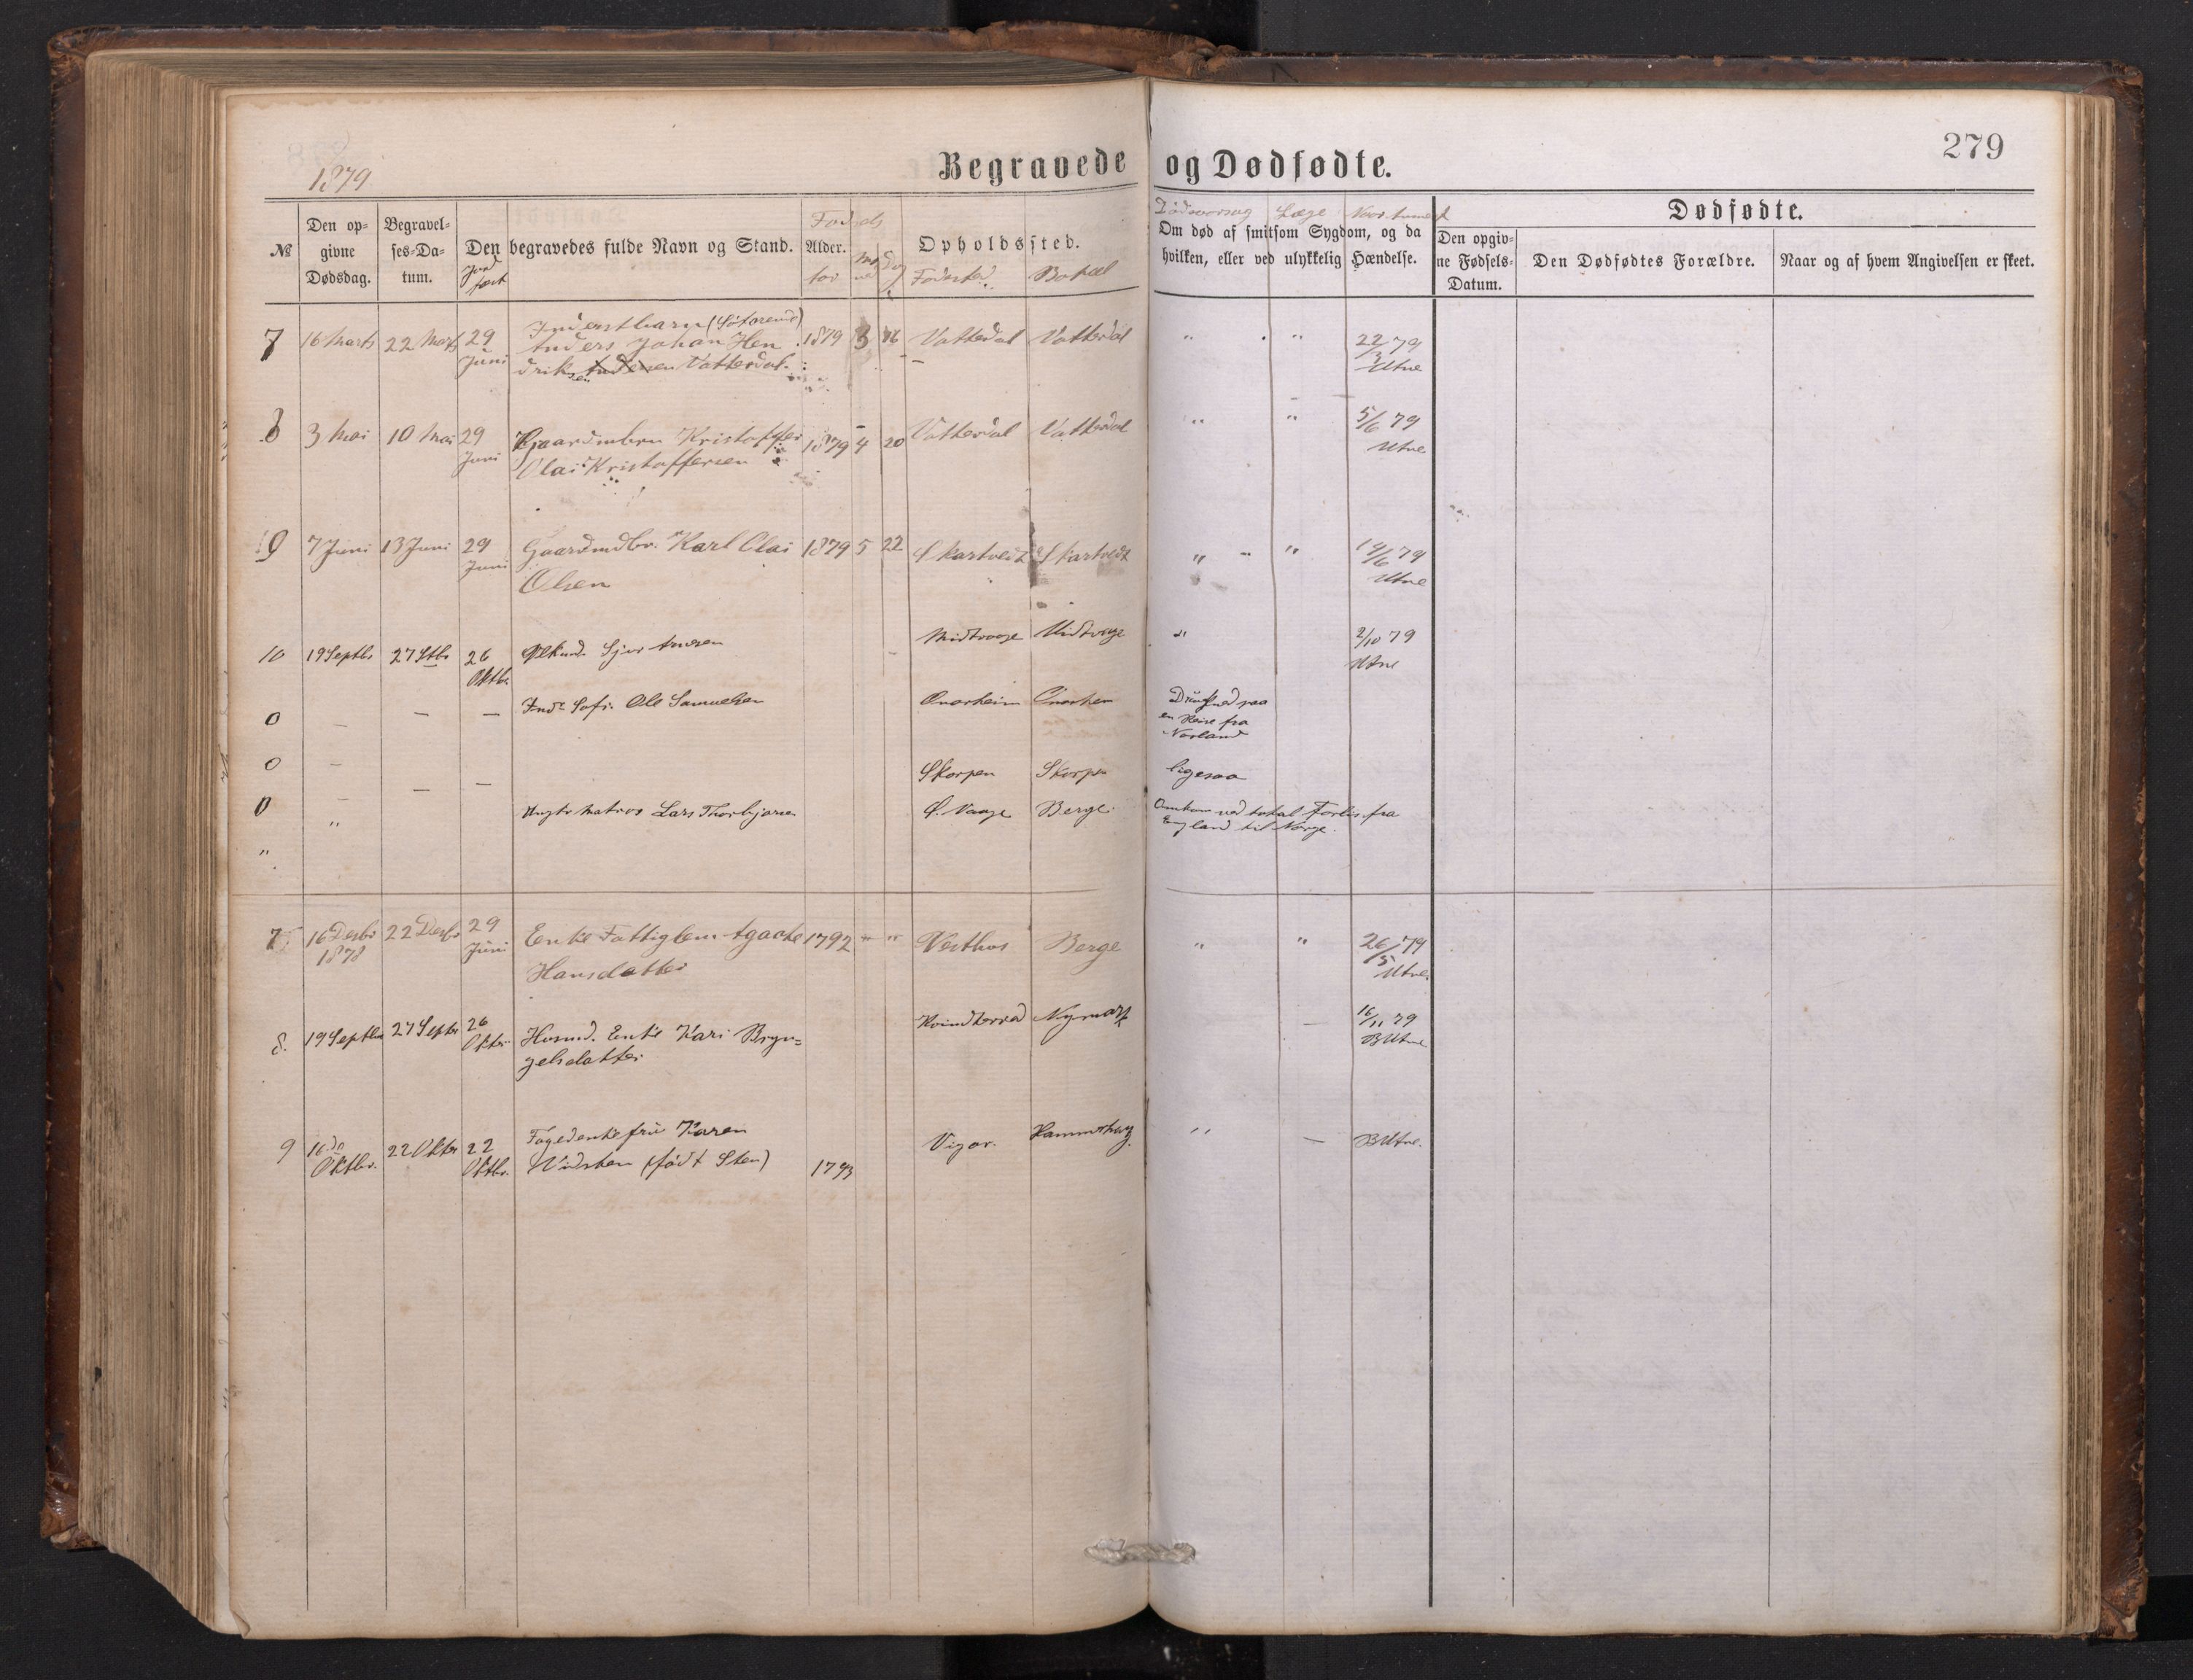 279
1879
Begravede og Dødfødte.
№
Den op-
givne
Dødsdag.
Begravel-
ses-Da-
tum.
Jord
fæst
Den begravedes fulde Navn og Stand.
Føds els
Alder.
Opholdssted.
Fødested. Bopæl
Dødsaarsag Læge
Om død af smitsom Sygdom, og da
hvilken, eller ved ulykkelig Hændelse.
Dødfødte.
Den opgiv-
ne Fødsels-
Datum.
Den Dødfødtes Forældre.
Naar og af hvem Angivelsen er skeet.
7 16 Marts 22 Marts 29 Juni
Anders Johan Hen
driksen Vatterdal. 1879 3 16 Vatterdal Vatterdal " " 22/3 79
Utne
8 3 Mai 10 Mai 29 Juni Kristoffer
Olai Kristoffersen 1879 4 20 Vatterdal Vatterdal " " 5/6 79
Utne
9 7 Juni 13 Juni 29 Juni Gaardmdbr. Karl Olai
Olsen 1879 5 22 Skartvedt Skartvedt " " 14/6 79
Utne
10 19 Septbr 27 Stbr 26 Oktbr Midtvaage Midtvage " 2/10 79
Utne
0 – – – Ole Samuelsen Onarheim Onarhem paa
en Reise fra
Norland
0 – – – Skorpen Skorpen ligesaa
0 – " Matros Lars Thorbjørnsen Ø. Vaage Berge Omkom ved total Forlis fra
England til Norge.
"
7 16 Decbr
1878 22 Decbr 29 Juni Enke Fattiglem Agaate
Hansdatter 1792 " " Vesthus Berge " " 26/5 79
Utne
8. 19 Septbr 27 Septbr 26 Oktbr Husmd. Enke Kari Bryn=
gelsdatter Kvindherred Nymark – 16/11 79
B Utne
9 16de
Oktbr. 22 Oktbr 22
Oktbr. Fogedenkefru Karen
Vidsten (født Sten) 1793 Vigør. Hammerhaug. " – B Utne.